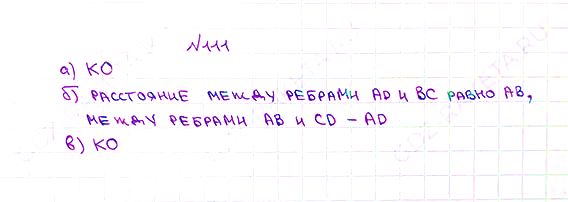 №111
а) КО
б) РАССТОЯНИЕ МЕЖДУ РЕБРАМИ AD И BC РАВНО AB,
МЕЖДУ РЕБРАМИ AB И CD – AD
в) КО